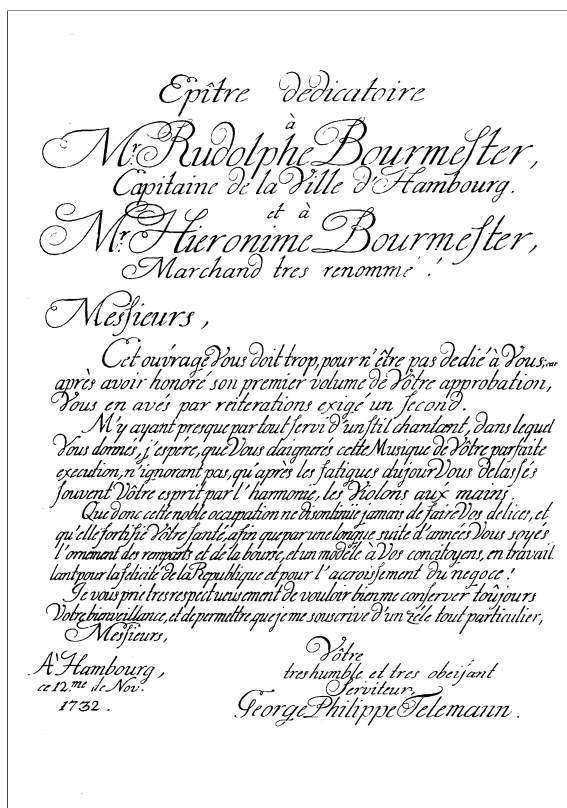 Epître dédicatoire
à
Mr. Rudolphe Bourmester,
Capitaine de la Ville d'Hambourg.
et à
Mr. Hieronime Bourmester,
Marchand tres renommé!
Messieurs,
Cet ouvrage Vous doit trop, pour n'être pas dedié à Vous; car
après avoir honoré son premier volume de Vôtre approbation,
Vous en avés par reiterations exigé un second.
M'y ayant presque par tout servi d'un stil chantant, dans lequel
Vous donnés, j'espére, que Vous daignerés cette Musique de Vôtre parfaite
execution, n'ignorant pas, qu'après les fatigues du jour Vous delassés
souvent Vôtre esprit par l'harmonie, les Violons aux mains.
Que donc cette noble occupation ne discontinüe jamais de faire Vos delices, et
qu'elle fortifie Vôtre santé, afin que par une longue suite d'années Vous soyés
l'ornément des remparts et de la bourse, et un modèle à Vos concitoyens, en travail
lant pour la felicité de la Republique et pour l'accroissement du negoce!
Je vous prie tres respectueusement de vouloir bien me conserver toûjours
Votre bienveillance, et de permettre, que je me souscrive d'un zéle tout particulier,
Messieurs,
Vôtre
tres humble et tres obeissant
Serviteur,
George Philippe Telemann.
A' Hambourg,
ce 12.me de Nov.
1732.